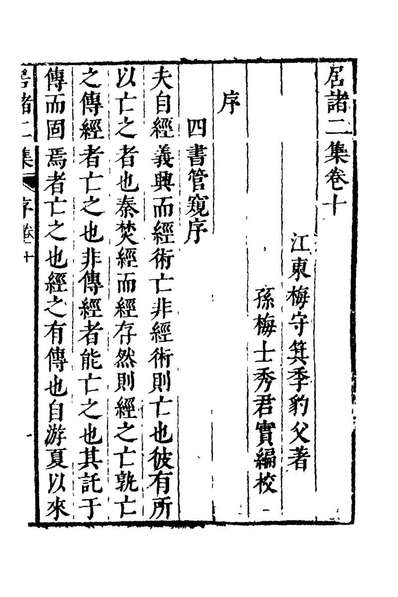 居諸二集卷十
江東梅守箕季豹父著
孫梅士秀君實編校
序
四書管窺序
夫自經義興而經術亡非經術則亡也彼有所
以亡之者也秦焚經而經存然則經之亡孰亡
之傳經者亡之也非傳經者能亡之也其託于
傳而固焉者亡之也經之有傳也自游夏以來
居諸二集
序卷十
一